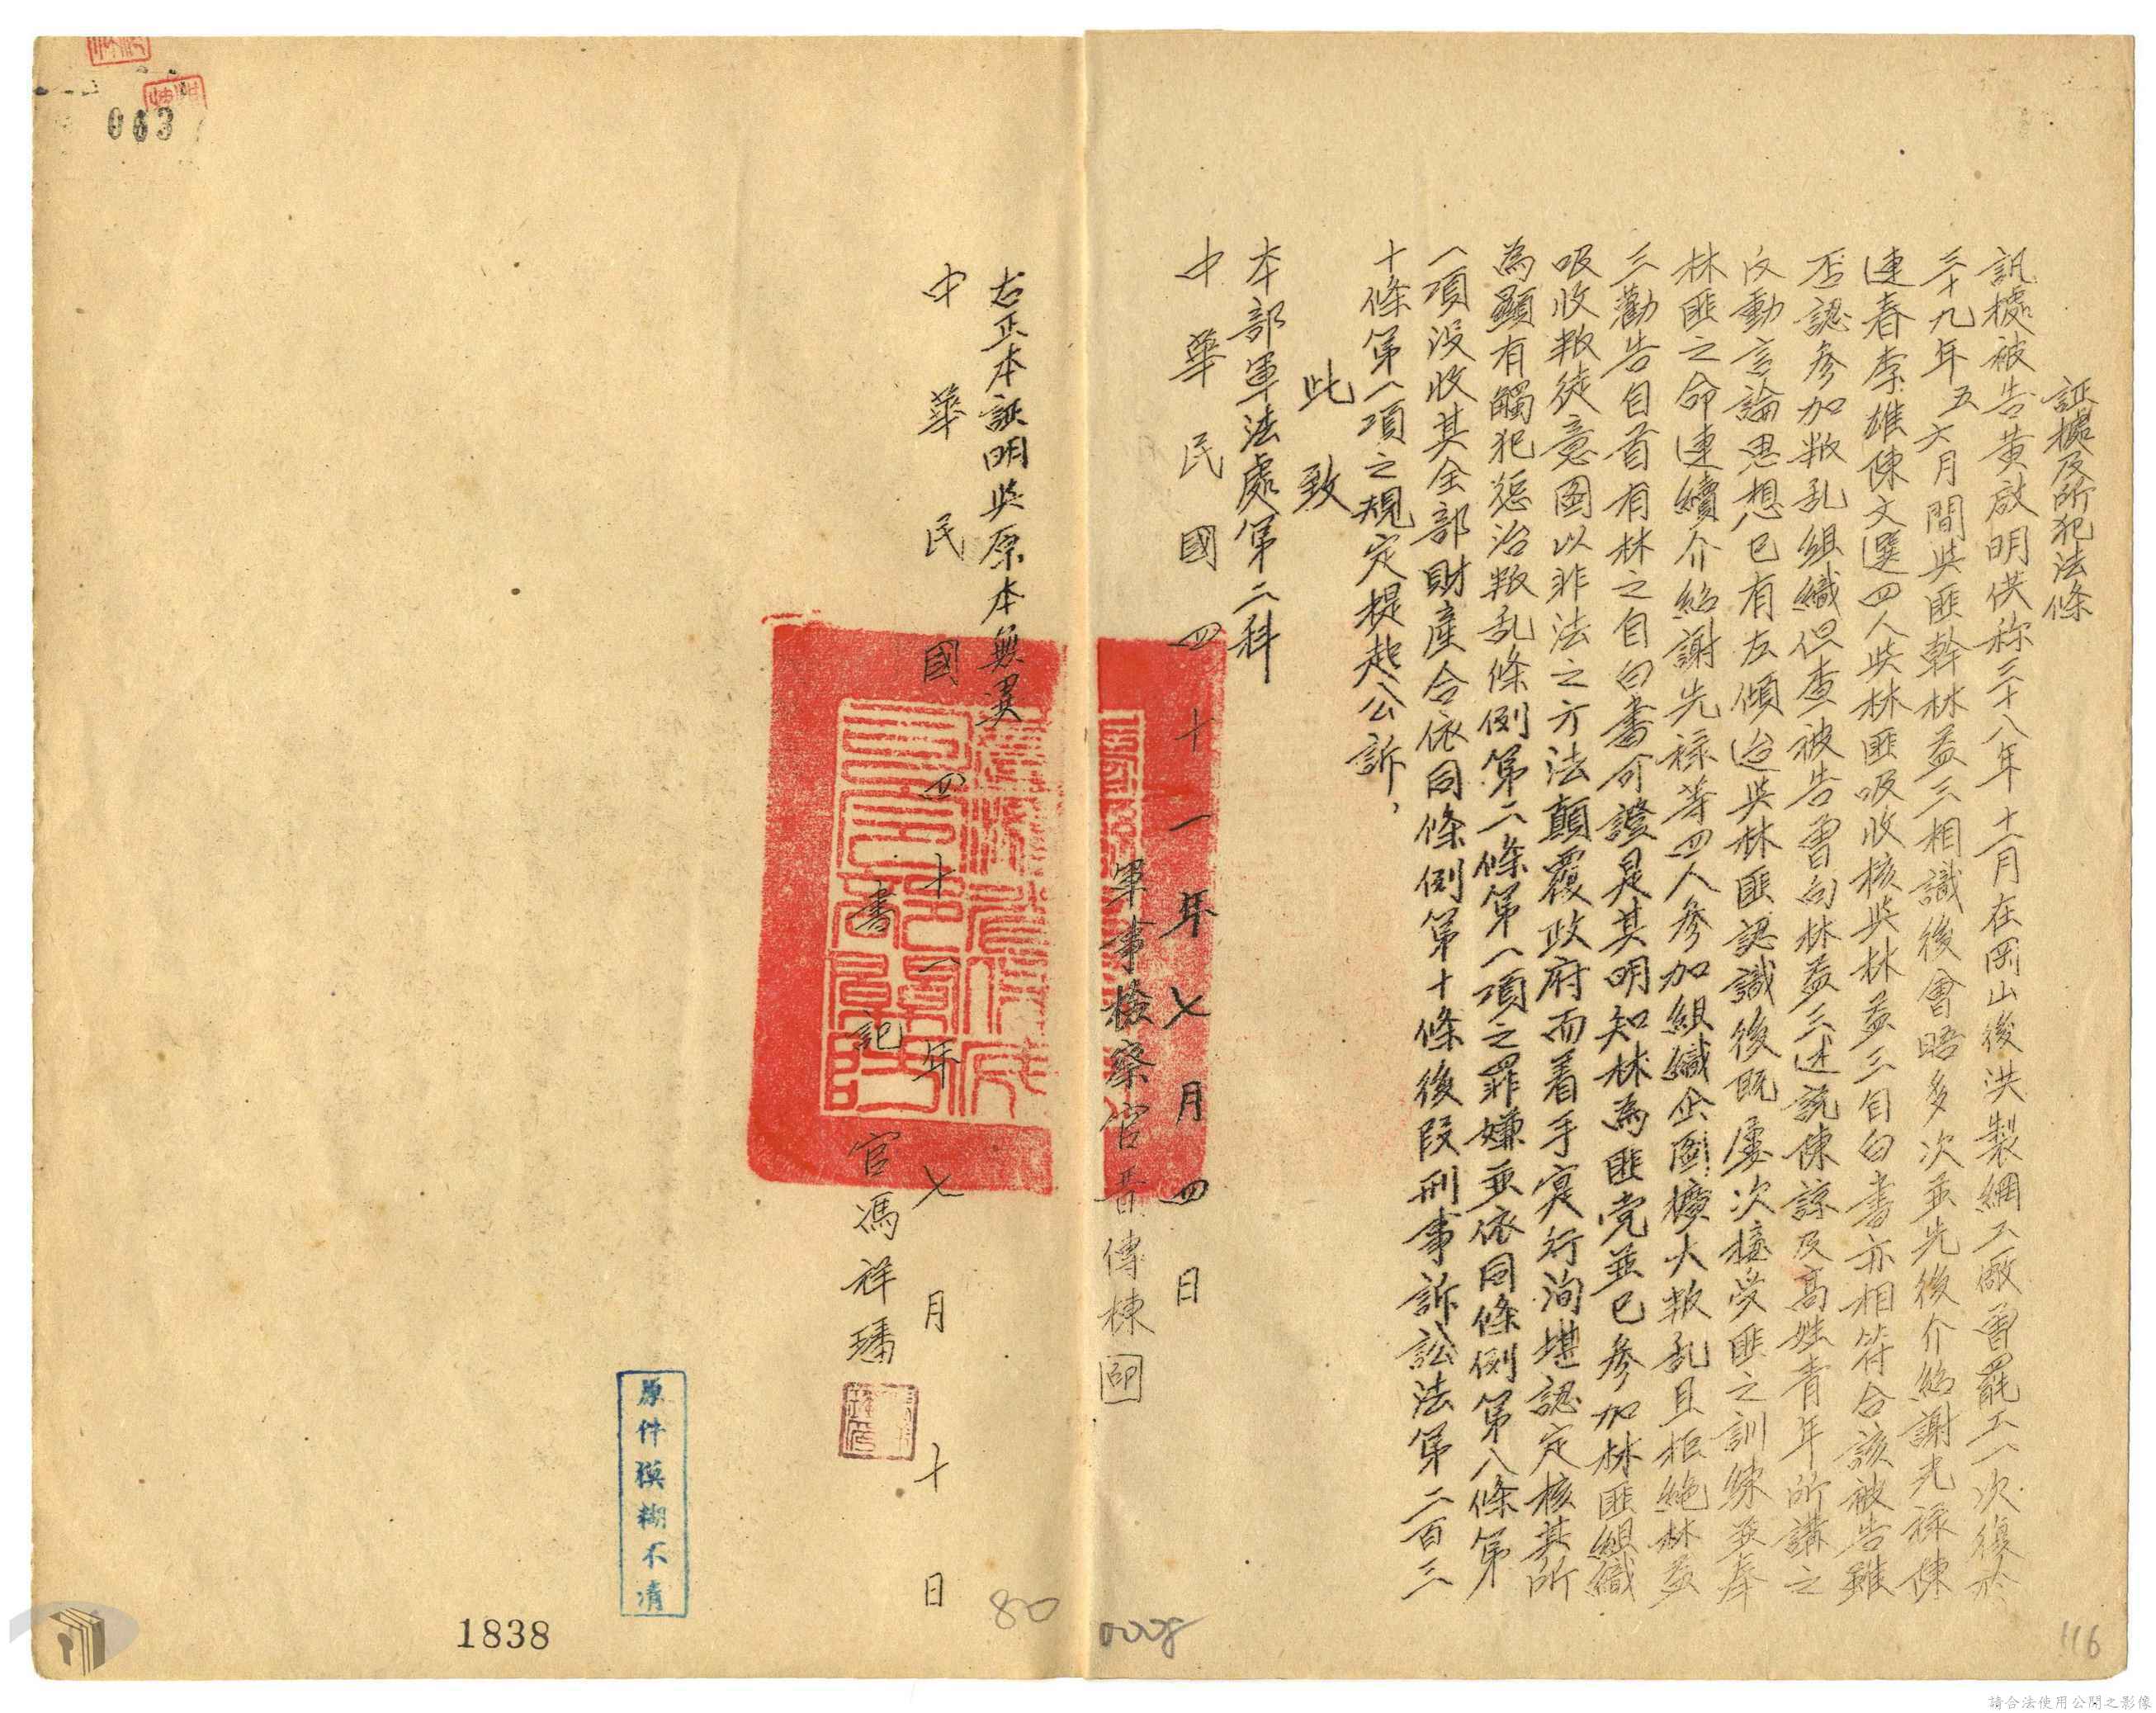 証據及所犯法條
訊據被告黃啟明供称三十八年十一月在岡山後洪製網工廠曾罷工一次復於
三十九年五六月間與匪幹林益三相識後會晤多次並先後介紹謝先祿陳
連春李雄陳文選四人與林匪吸收核與林益三自白書亦相符合該被告雖
否認参加叛乱組織但查被告曾向林益三述説陳諒及高姓青年所講之
反動言論思想已有左傾迨與林匪認識後既屢次接受匪之訓練並奉
林匪之命連續介紹謝先祿等四人参加組織企圖擴大叛乱且拒絕林益
三勸告自首有林之自白書可證是其明知林為匪党並已参加林匪組織
吸收叛徒意圖以非法之方法顛覆政府而着手寔行洵堪認定核其所
為顯有觸犯懲治叛乱條例第二條第一項之罪嫌並依同條例第八條第
一項没收其全部財產合依同條例第十條後段刑事訴訟法第二百三
十條第一項之規定提起公訴、
此致
本部軍法處第二科
中華民國四十一年七月四日
軍事檢察官 傳棟 印
右正本証明與原本無異
中華民國四十一年七月十日
書記官馮祥璠
原件模糊不清
063
1838
80
0008
116
請合法使用公開之影像